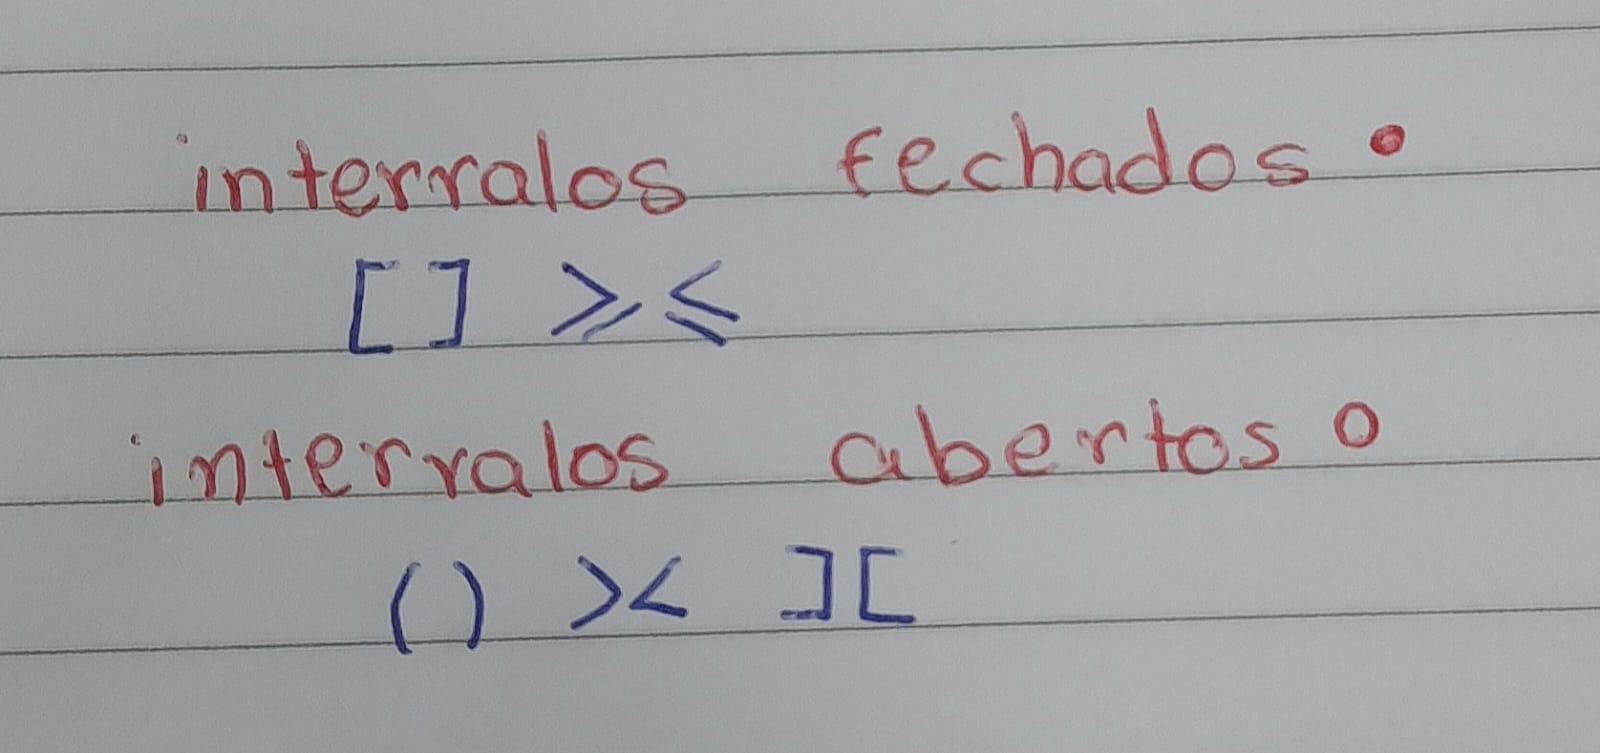 intervalos fechados •
[ ] ⩾ ⩽
intervalos abertos o
( ) > < ] [